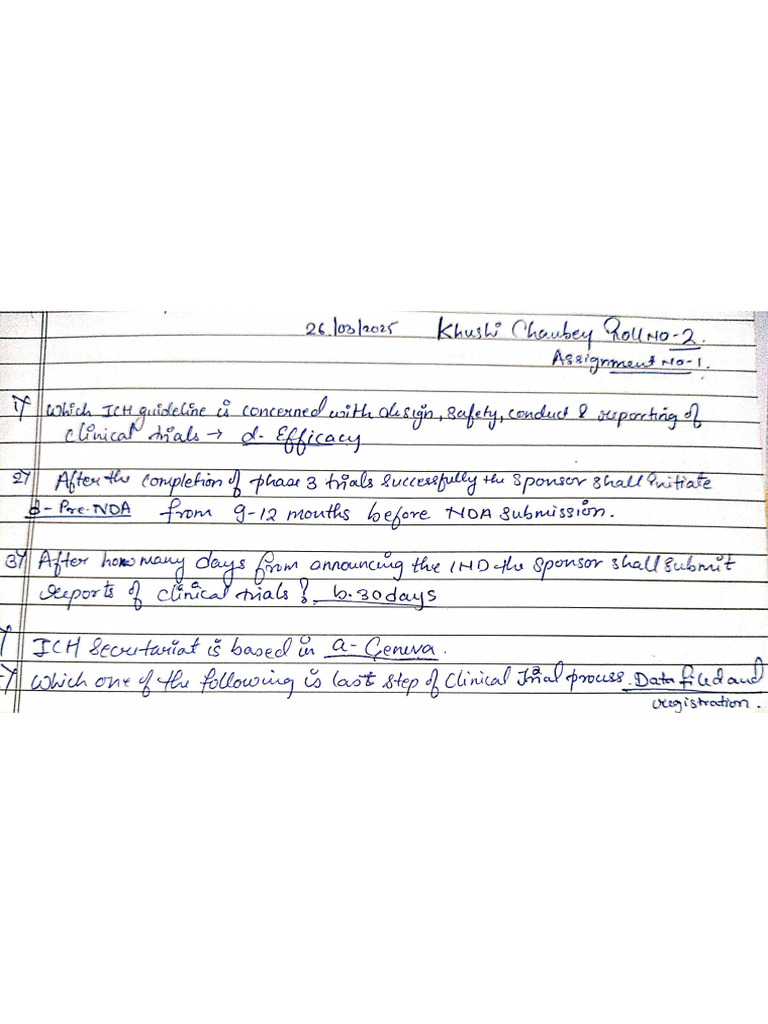 26/03/2025 Khushi Chaubey Roll No-2.
Assignment No-1.
1) Which ICH guideline is concerned with design, safety, conduct & reporting of
clinical trials → d- Efficacy
2) After the completion of phase 3 trials successfully the sponsor shall initiate
d- Pre-NDA from 9-12 months before NDA submission.
3) After how many days from announcing the IND the sponsor shall submit
reports of clinical trials? b. 30 days
ICH Secretariat is based in a- Geneva.
Which one of the following is last step of Clinical Trial process. Data filed and
registration.